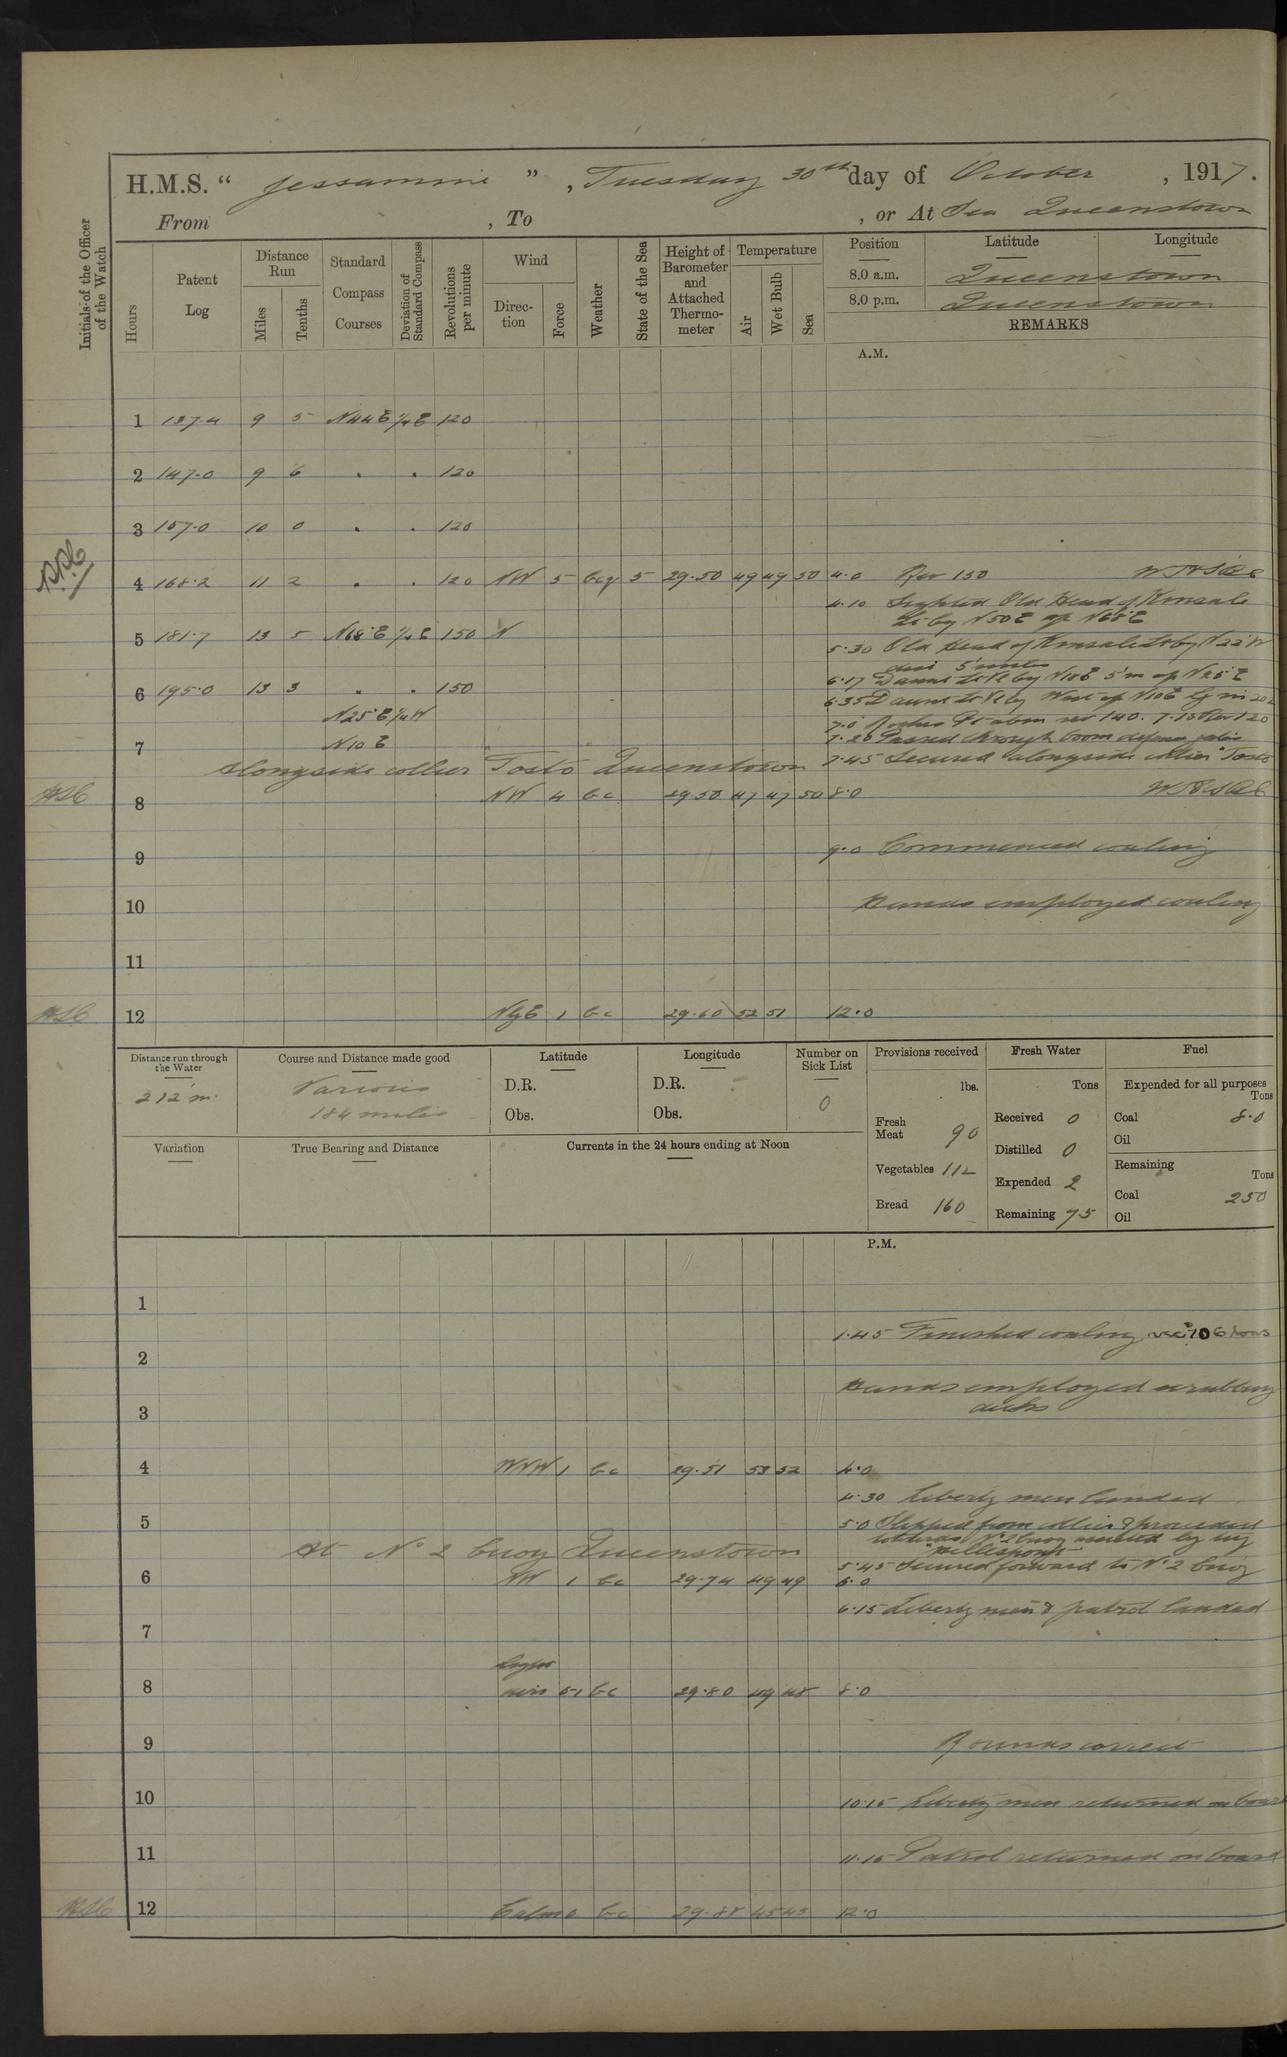 H.M.S. " Jessamine ", Tuesday 30th day of October, 1917.
From , To , or At Sea Queenstown
Initials of the Officer of the Watch
Hours
Patent Log
Distance Run
Miles
Tenths
Standard Compass Courses
Deviation of Standard Compass
Revolutions per minute
Wind
Direction
Force
Weather
State of the Sea
Height of Barometer and Attached Thermometer
Temperature
Air
Wet Bulb
Sea
Position Latitude Longitude
8.0 a.m. Queenstown
8.0 p.m. Queenstown
REMARKS
A.M.
1 137.4 9 5 N44E ¼E 120
2 147.0 9 6 " " 120
3 157.0 10 0 " " 120
4 168.2 11 2 " " 120 NW 5 bcq 5 29.50 49 49 50 4.0 Rev 150
4.10 Sighted Old Head of Kinsale
Lt by N50E a/c N68°E
5 181.7 13 5 N68°E ¼E 150 N
5.30 Old Head of Kinsale Lt by N22°W
dist 5 miles
6 195.0 13 3 " " 150
6.17 Daunt Lt V by N18E 5'm a/c N25°E
N25°E ¼W
6.35 Daunt Lt V by West a/c N10E
N10E
7.0 Roches Pt abm rev 140. 7.15 Rev 120
7
7.20 Passed through boom defence
alongside collier "Tosto" Queenstown
7.45 Secured alongside collier "Tosto"
8 NW 4 bc 29.50 47 47 50 8.0
9 9.0 Commenced coaling
10 Hands employed coaling
11
12 NyE 1 bc 29.60 52 51 12.0
Distance run through the Water
212'm.
Course and Distance made good
Various
184 miles
Latitude
D.R.
Obs.
Longitude
D.R. -
Obs.
Number on Sick List
0
Provisions received
lbs.
Fresh Meat 90
Vegetables 112
Bread 160
Fresh Water
Tons
Received 0
Distilled 0
Expended 2
Remaining 75
Fuel
Expended for all purposes
Tons
Coal 8.0
Oil
Remaining
Tons
Coal 250
Oil
Variation
True Bearing and Distance
Currents in the 24 hours ending at Noon
P.M.
1
1.45 Finished coaling recd 106 tons
2
Hands employed scrubbing
decks
3
4 WNW 1 bc 29.51 53 52 4.0
4.30 Liberty men landed
5
5.0 Slipped from collier & proceeded
towards No 2 buoy assisted by tug
"Hellespont"
At No 2 buoy Queenstown
5.45 Secured forward to No 2 buoy
6 NW 1 bc 29.74 49 49 6.0
6.15 Liberty men & patrol landed
7
Light
8 airs 0-1 bc 29.80 49 48 8.0
9 Rounds correct
10 10.15 Liberty men returned on board
11 11.15 Patrol returned on board
12 Calm 0 bc 29.88 45 45 12.0